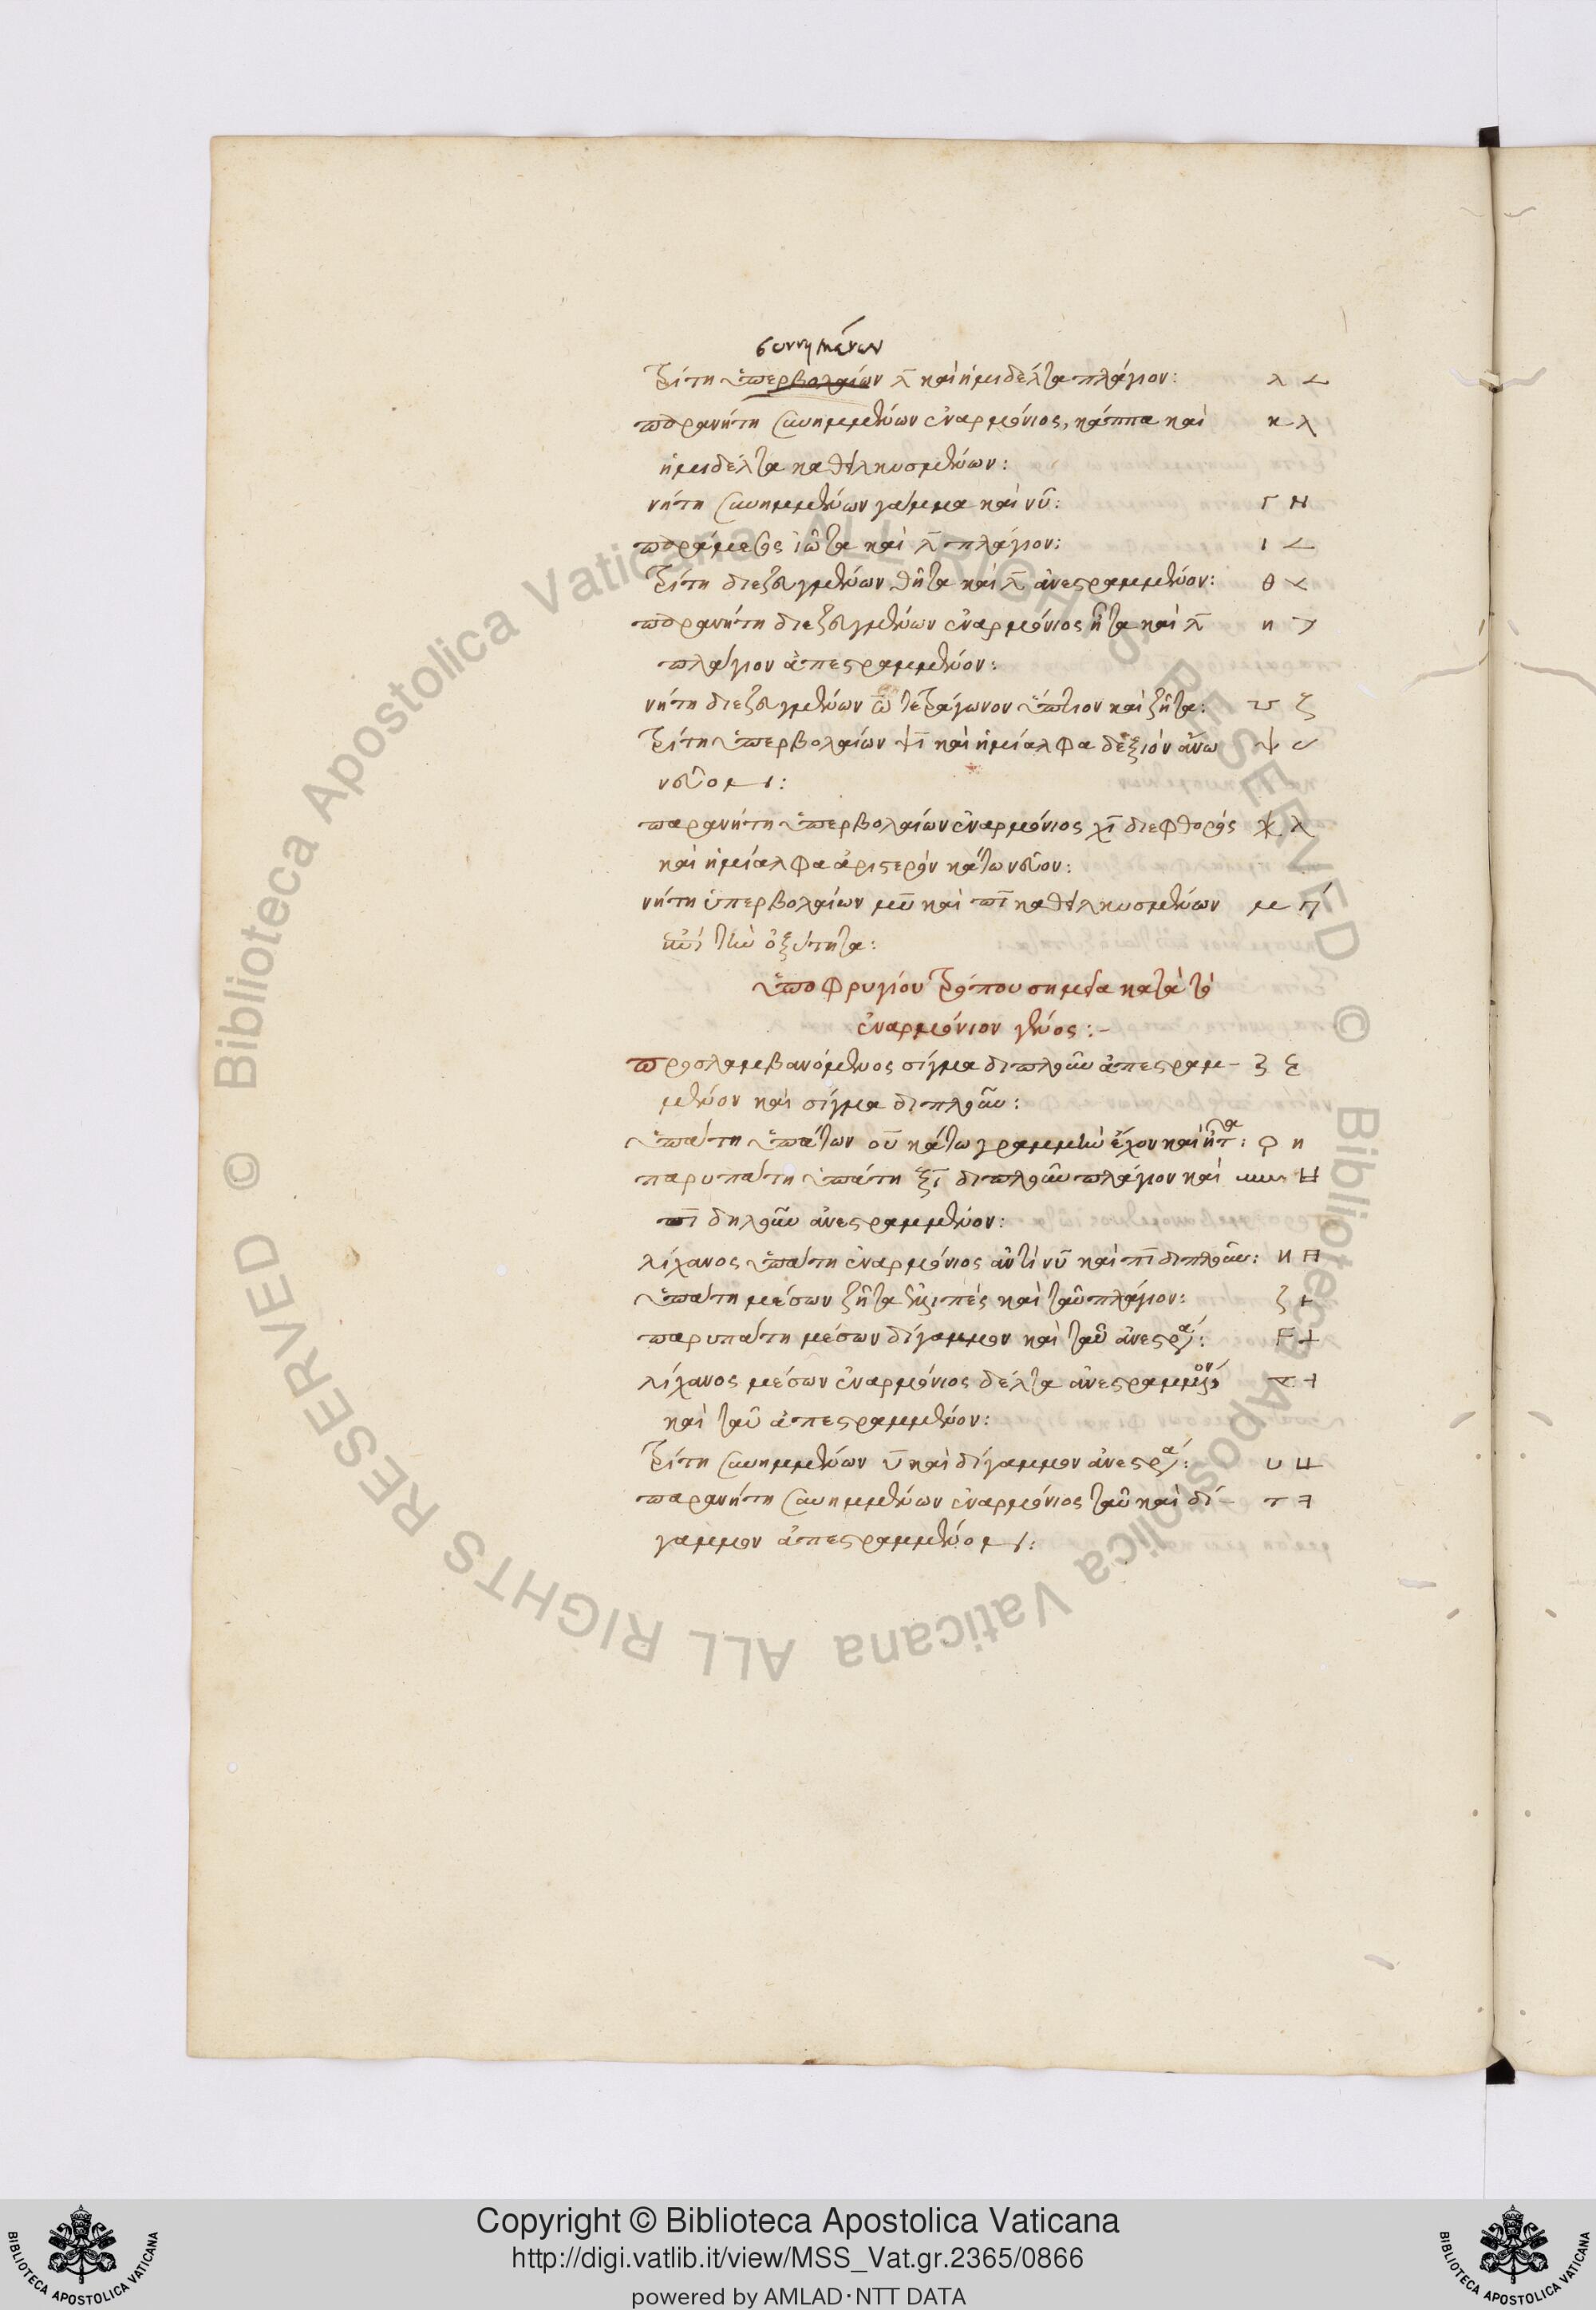 συννημένων
τρίτη ὑπερβολαίων λ̅ καὶ ἡμιδέλτα πλάγιον: λ
παρανήτη συνημμένων ἐναρμόνιος, κάππα καὶ κ
ἡμιδέλτα καθειλκυσμένων:
νήτη συνημμένων γάμμα καὶ νῦ: Γ Ν
παράμεσος ἰῶτα καὶ λ̅ πλάγιον: ι <
τρίτη διεζευγμένων θῆτα καὶ λ̅ ἀνεστραμμένον: θ
παρανήτη διεζευγμένων ἐναρμόνιος ἦτα καὶ λ̅ η
πλάγιον ἀπεστραμμένον:
νήτη διεζευγμένων ω̅ τετράγωνον ὕπτιον καὶ ζῆτα: ζ
τρίτη ὑπερβολαίων ψι̅ καὶ ἡμίαλφα δεξιὸν ἄνω ψ
νεῦον:
παρανήτη ὑπερβολαίων ἐναρμόνιος χι̅ διεφθορὸς
καὶ ἡμίαλφα ἀριστερὸν κάτω νεῦον:
νήτη ὑπερβολαίων μῦ καὶ πι̅ καθειλκυσμένων μ
ἐπὶ τὴν ὀξύτητα:
ὑποφρυγίου τρόπου σημεῖα κατὰ τὸ
ἐναρμόνιον γένος:-
προσλαμβανόμενος σίγμα διπλοῦν ἀπεστραμ-
μένον καὶ σίγμα διπλοῦν:
ὑπάτη ὑπάτων οὗ κάτω γραμμὴν ἔχον καὶ ἦτα: η
παρυπάτη ὑπάτη ξι̅ διπλοῦν πλάγιον καὶ
πι̅ δηλοῦν ἀνεστραμμένον:
λίχανος ὑπάτη ἐναρμόνιος ἀντίνῦ καὶ πι̅ διπλοῦν: И
ὑπάτη μέσων ζῆτα ἐλλιπὲς καὶ ταῦ πλάγιον:
παρυπάτη μέσων δίγαμμον καὶ ταῦ ἀνεστρα: Ϝ
λίχανος μέσων ἐναρμόνιος δέλτα ἀνεστραμμένον
καὶ ταῦ ἀπεστραμμένον:
τρίτη συνημμένων υ̅ καὶ δίγαμμον ἀνεστρα: υ
παρανήτη συνημμένων ἐναρμόνιος ταῦ καὶ δί- τ
γαμμον ἀπεστραμμένον:
© Biblioteca Apostolica Vaticana ALL RIGHTS RESERVED © Biblioteca Apostolica Vaticana ALL RIGHTS RESERVED
BIBLIOTECA APOSTOLICA VATICANA
Copyright © Biblioteca Apostolica Vaticana
http://digi.vatlib.it/view/MSS_Vat.gr.2365/0866
powered by AMLAD·NTT DATA
BIBLIOTECA APOSTOLICA VATICANA